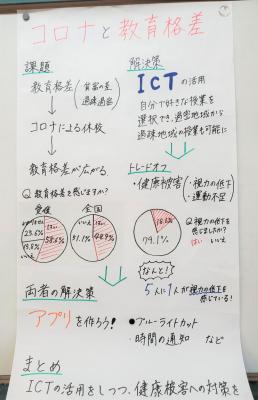 コロナと教育格差
課題
教育格差(貧富の差
過疎過密)
↓
コロナによる休校
↓
教育格差が広がる
Q 教育格差を感じますか?
愛媛
全国
いいえ
23.6%
はい
58.6%
いいえ
51.1%
はい
48.9%
解決策
ICTの活用
自分で好きな授業を
選択でき、過密地域から
過疎地域の授業も可能に
トレードオフ
・健康被害(・視力の低下
・運動不足)
79.1%
Q 視力の低下を
感じますか?
はい いいえ
なんと!
5人に1人が視力の低下を
感じている!
両者の解決策
アプリを作ろう!
●ブルーライトカット
・時間の通知 など
まとめ
ICTの活用をしつつ、健康被害への対策を